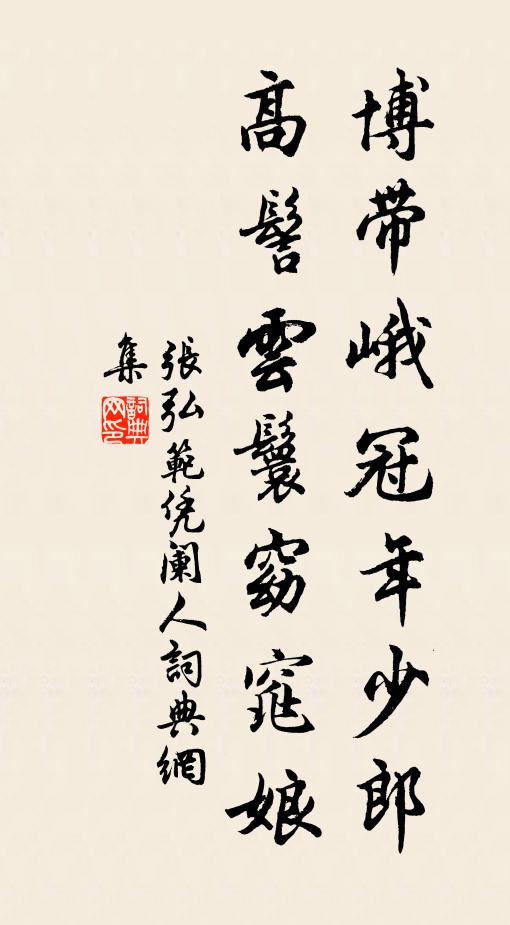 博帶峨冠年少郎
高髻雲鬟窈窕娘
張弘範凭闌人詞典網
集
詞典网印